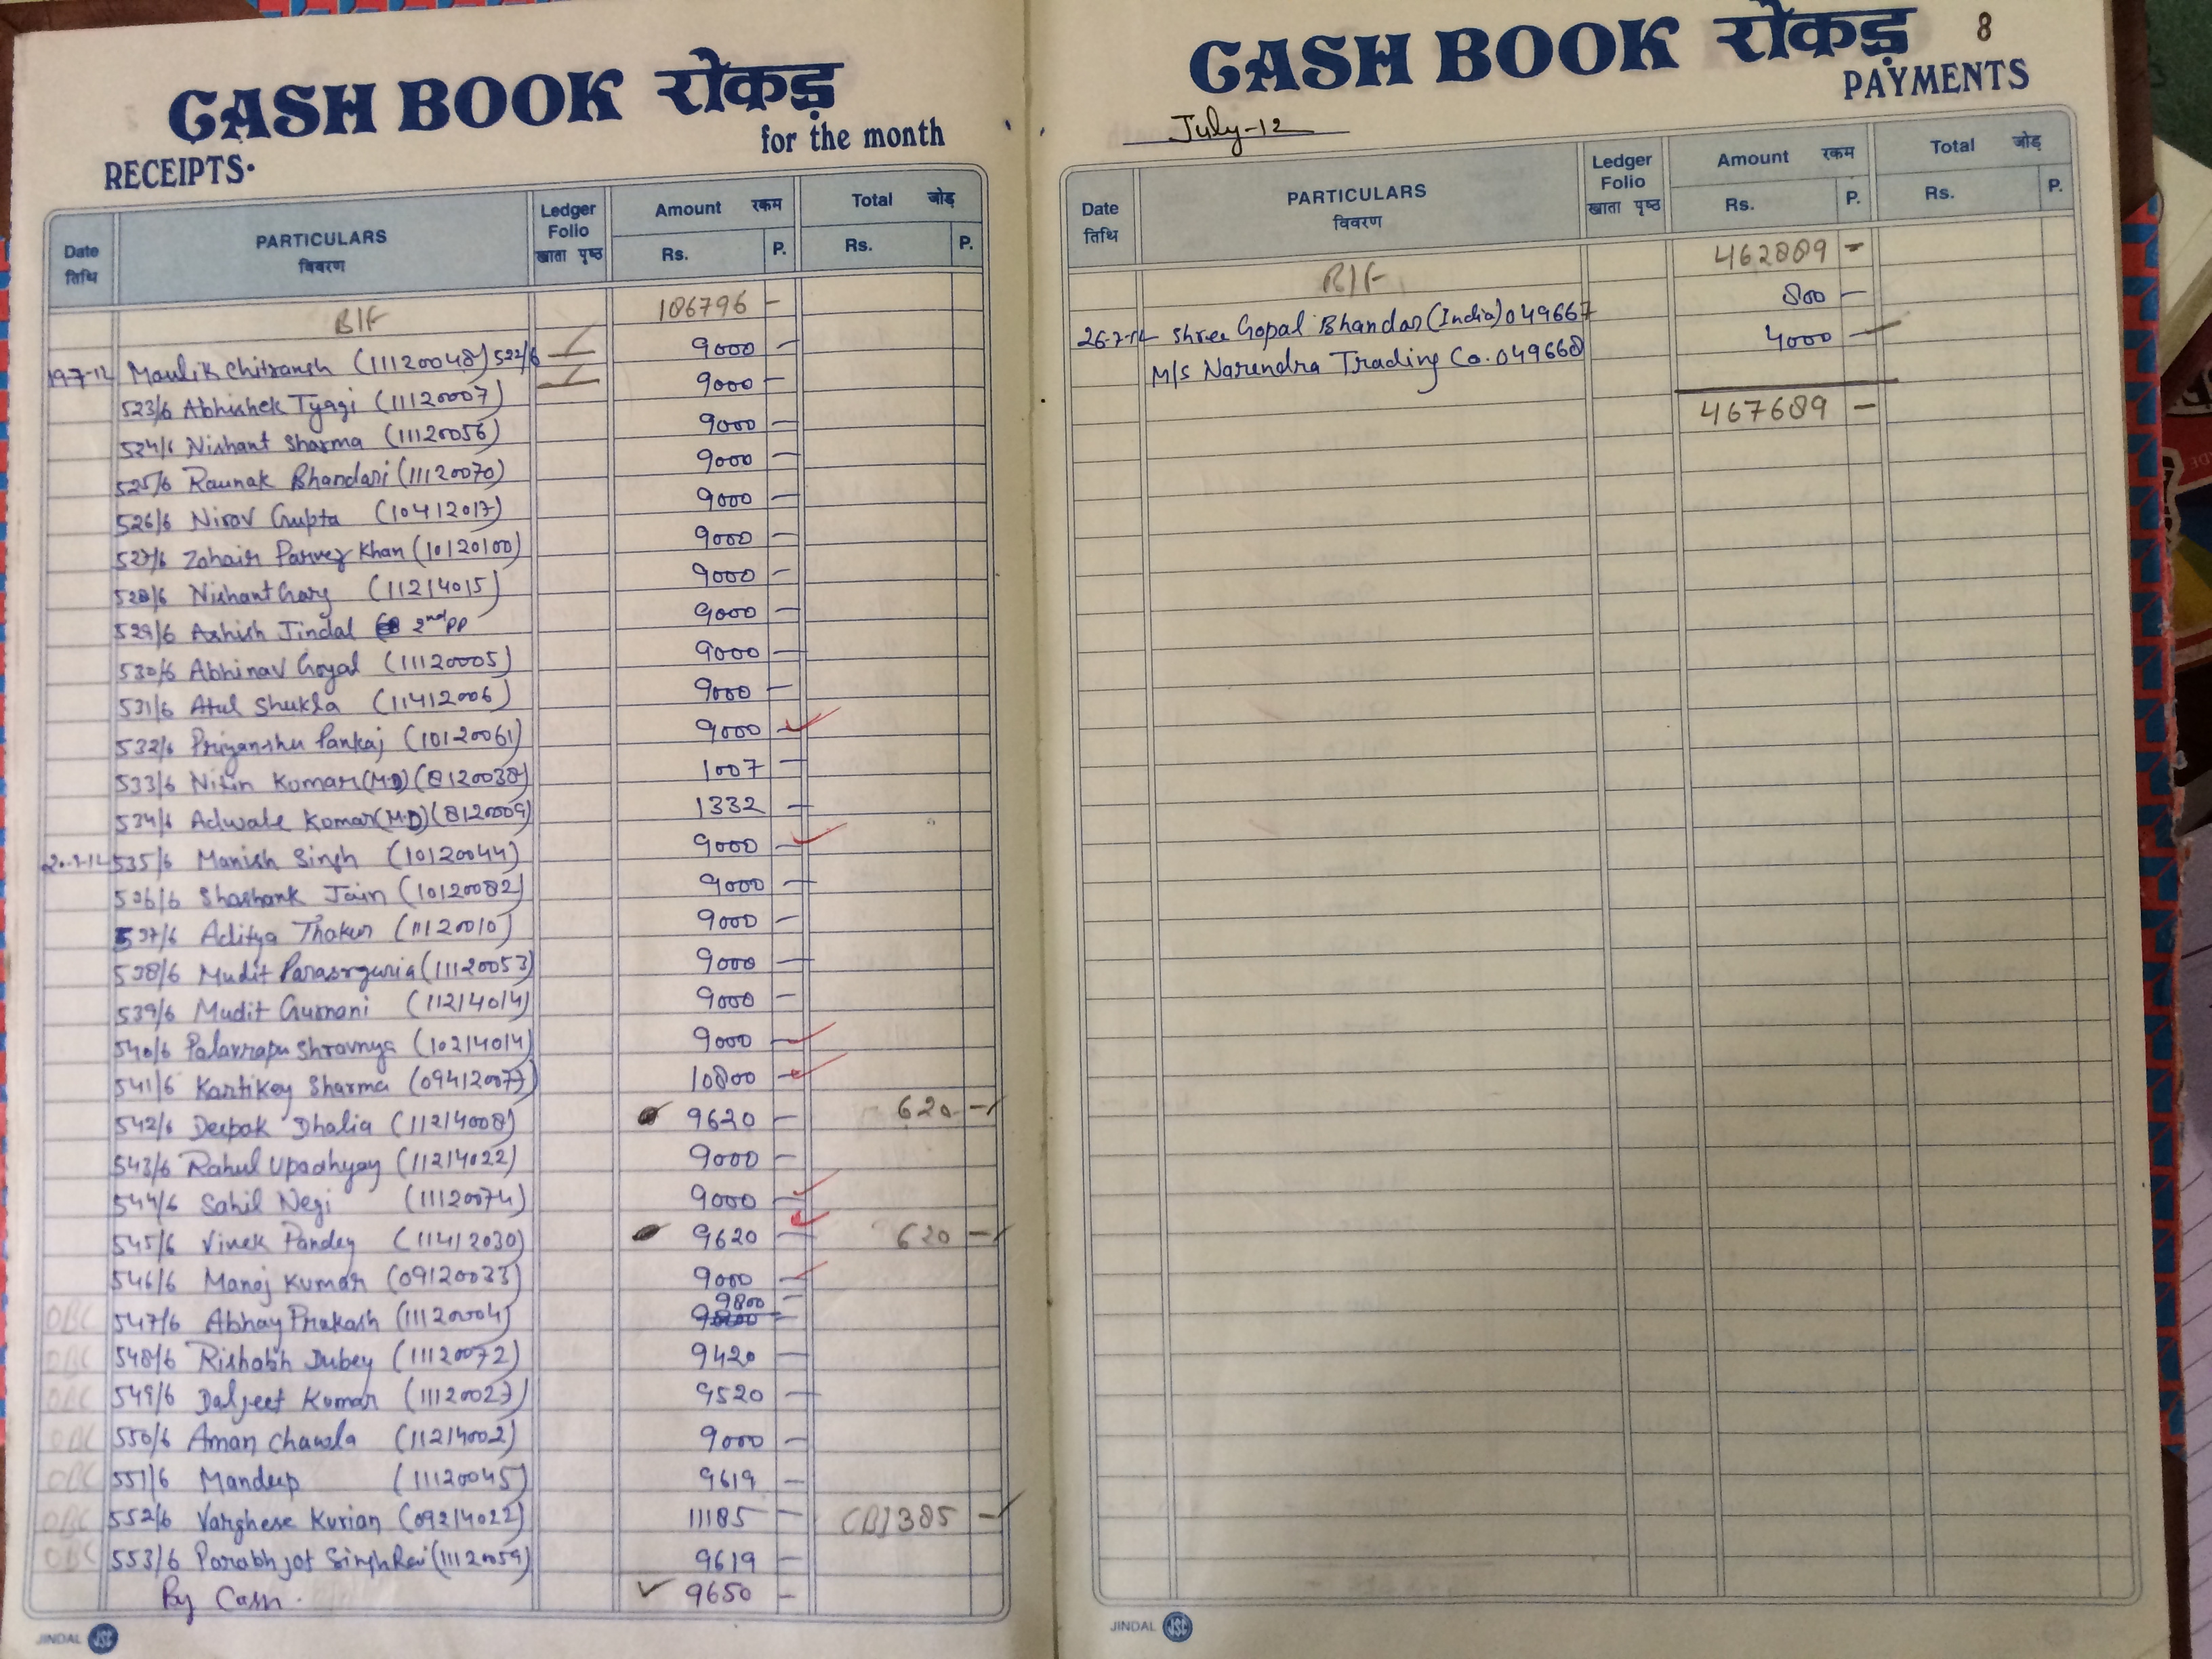 CASH BOOK रोकड़
RECEIPTS.
for the month
Date
तिथि
PARTICULARS
विवरण
Ledger
Folio
खाता पृष्ठ
Amount रकम
Rs. P.
Total जोड़
Rs. P.
B/F 106796 -
19-7-12 Maulik Chitransh (11120048) 522/6 9000 -
523/6 Abhishek Tyagi (11120007) 9000 -
524/6 Nishant Sharma (11120056) 9000 -
525/6 Raunak Bhandari (11120070) 9000 -
526/6 Nirav Gupta (10412017) 9000 -
527/6 Zohaib Parvez Khan (10120100) 9000 -
528/6 Nishant Garg (11214015) 9000 -
529/6 Ashish Jindal 9000 -
530/6 Abhinav Goyal (11120005) 9000 -
531/6 Atul Shukla (11412006) 9000 -
532/6 Priyanshu Pankaj (10120061) 9000 -
533/6 Nitin Kumar (M.D) (8120038) 1007 -
534/6 Kumar (M.D) (8120009) 1332 -
20-7-12 535/6 Manish Singh (10120044) 9000 -
536/6 Shashank Jain (10120082) 9000 -
537/6 Aditya Thakur (11120010) 9000 -
538/6 Mudit (11120053) 9000 -
539/6 Mudit Gumani (11214014) 9000 -
540/6 (10214014) 9000 -
541/6 Kartikay Sharma (09412007) 10800 -
542/6 Deepak Dhalia (11214008) 9620 - 620 -
543/6 Rahul Upadhyay (11214022) 9000 -
544/6 Sahil Negi (11120074) 9000 -
545/6 Vivek Pandey (11412030) 9620 - 620 -
546/6 Manoj Kumar (09120023) 9000 -
547/6 Abhay Prakash (11120004) 9800 -
OBC 548/6 Rishabh Dubey (11120072) 9420 -
OBC 549/6 Daljeet Kumar (11120027) 9520 -
OBC 550/6 Aman Chawla (11214002) 9000 -
OBC 551/6 Mandeep (11120045) 9619 -
OBC 552/6 Varghese Kurian (09214022) 11185 - 1385 -
OBC 553/6 9619 -
By Cash. 9650 -
JINDAL
JSC
8
CASH BOOK रोकड़
PAYMENTS
July-12
Date
तिथि
PARTICULARS
विवरण
Ledger
Folio
खाता पृष्ठ
Amount रकम
Rs. P.
Total जोड़
Rs. P.
B/F 462889 -
26-7-12 Shree Gopal Bhandar (India) 049667 800 -
M/s Narendra Trading Co. 049668 4000 -
467689 -
JINDAL
JSC